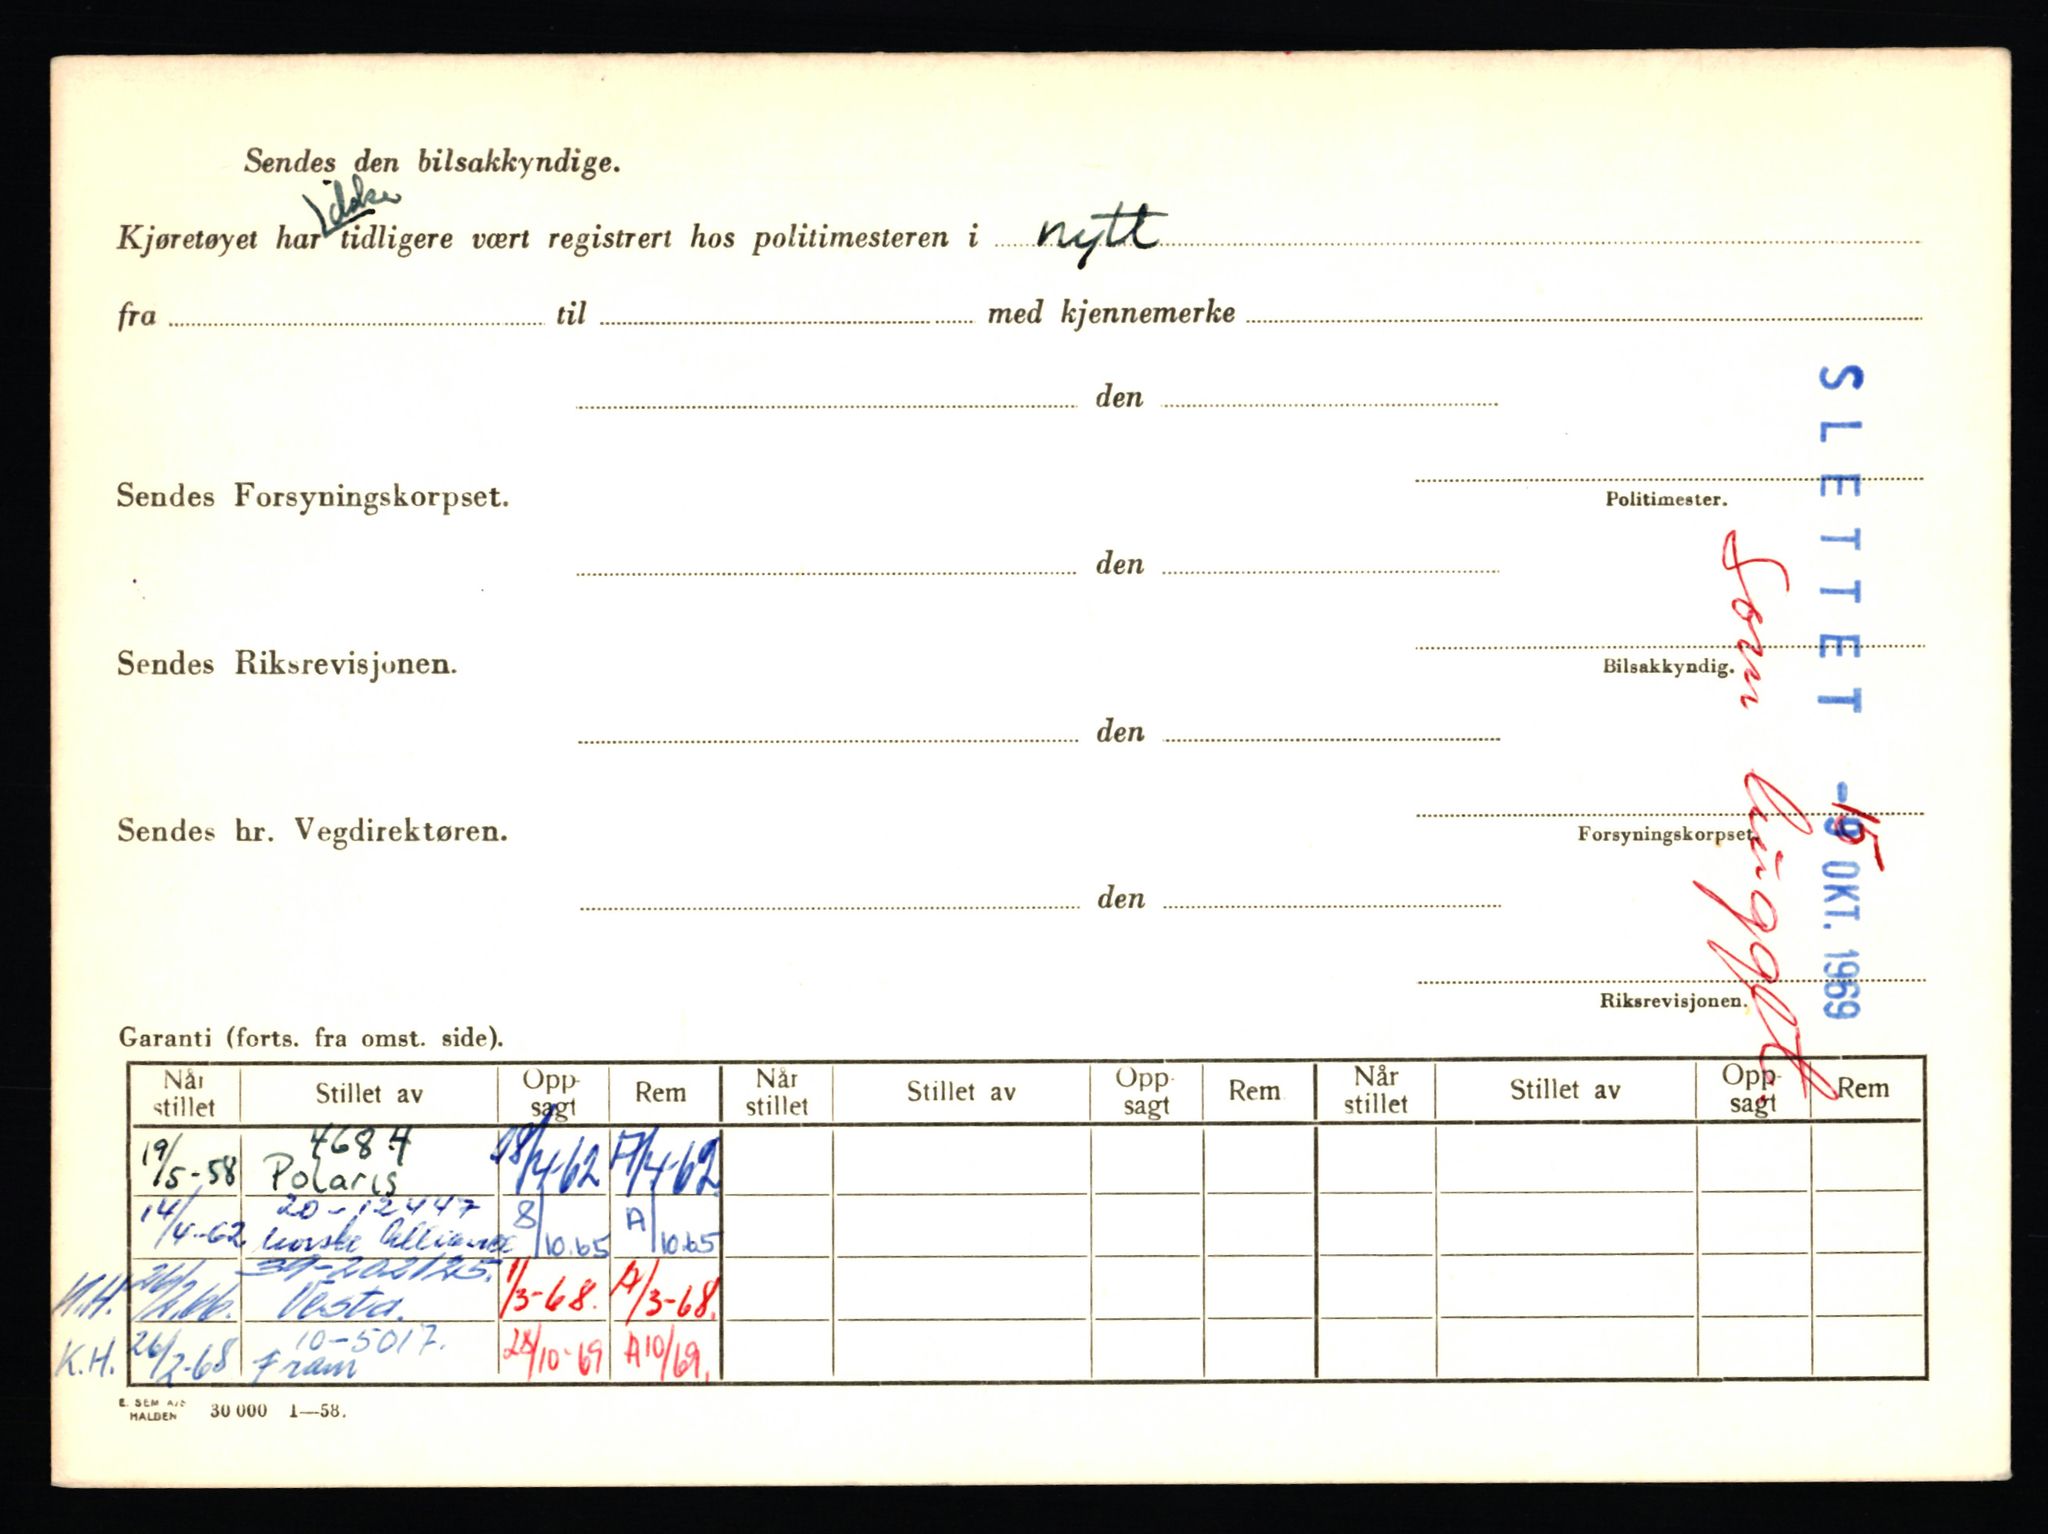 Sendes den bilsakkyndige.
ikke
Kjøretøyet har tidligere vært registrert hos politimesteren i nytt
fra til med kjennemerke
den
Politimester.
Sendes Forsyningskorpset.
den
Bilsakkyndig.
Sendes Riksrevisjonen.
den
Forsyningskorpset
Sendes hr. Vegdirektøren.
den
Riksrevisjonen.
SLETTET -9 OKT. 1969
15
Som
Garanti (forts. fra omst. side).
Når stillet Stillet av Opp-sagt Rem Når stillet Stillet av Opp-sagt Rem Når stillet Stillet av Opp-sagt Rem
19/5-58 4684 Polaris 28/4-62 A/4-62
14/4-62 20-12447 Norske Alliance 8/10.65 A/10.65
H.H. 26/2.66. 39-202125. Vesta. 1/3-68. A/3-68.
K.H. 26/2-68 10-5017. Fram 28/10-69 A10/69.
E. SEM A/S
HALDEN 30 000 1—58.